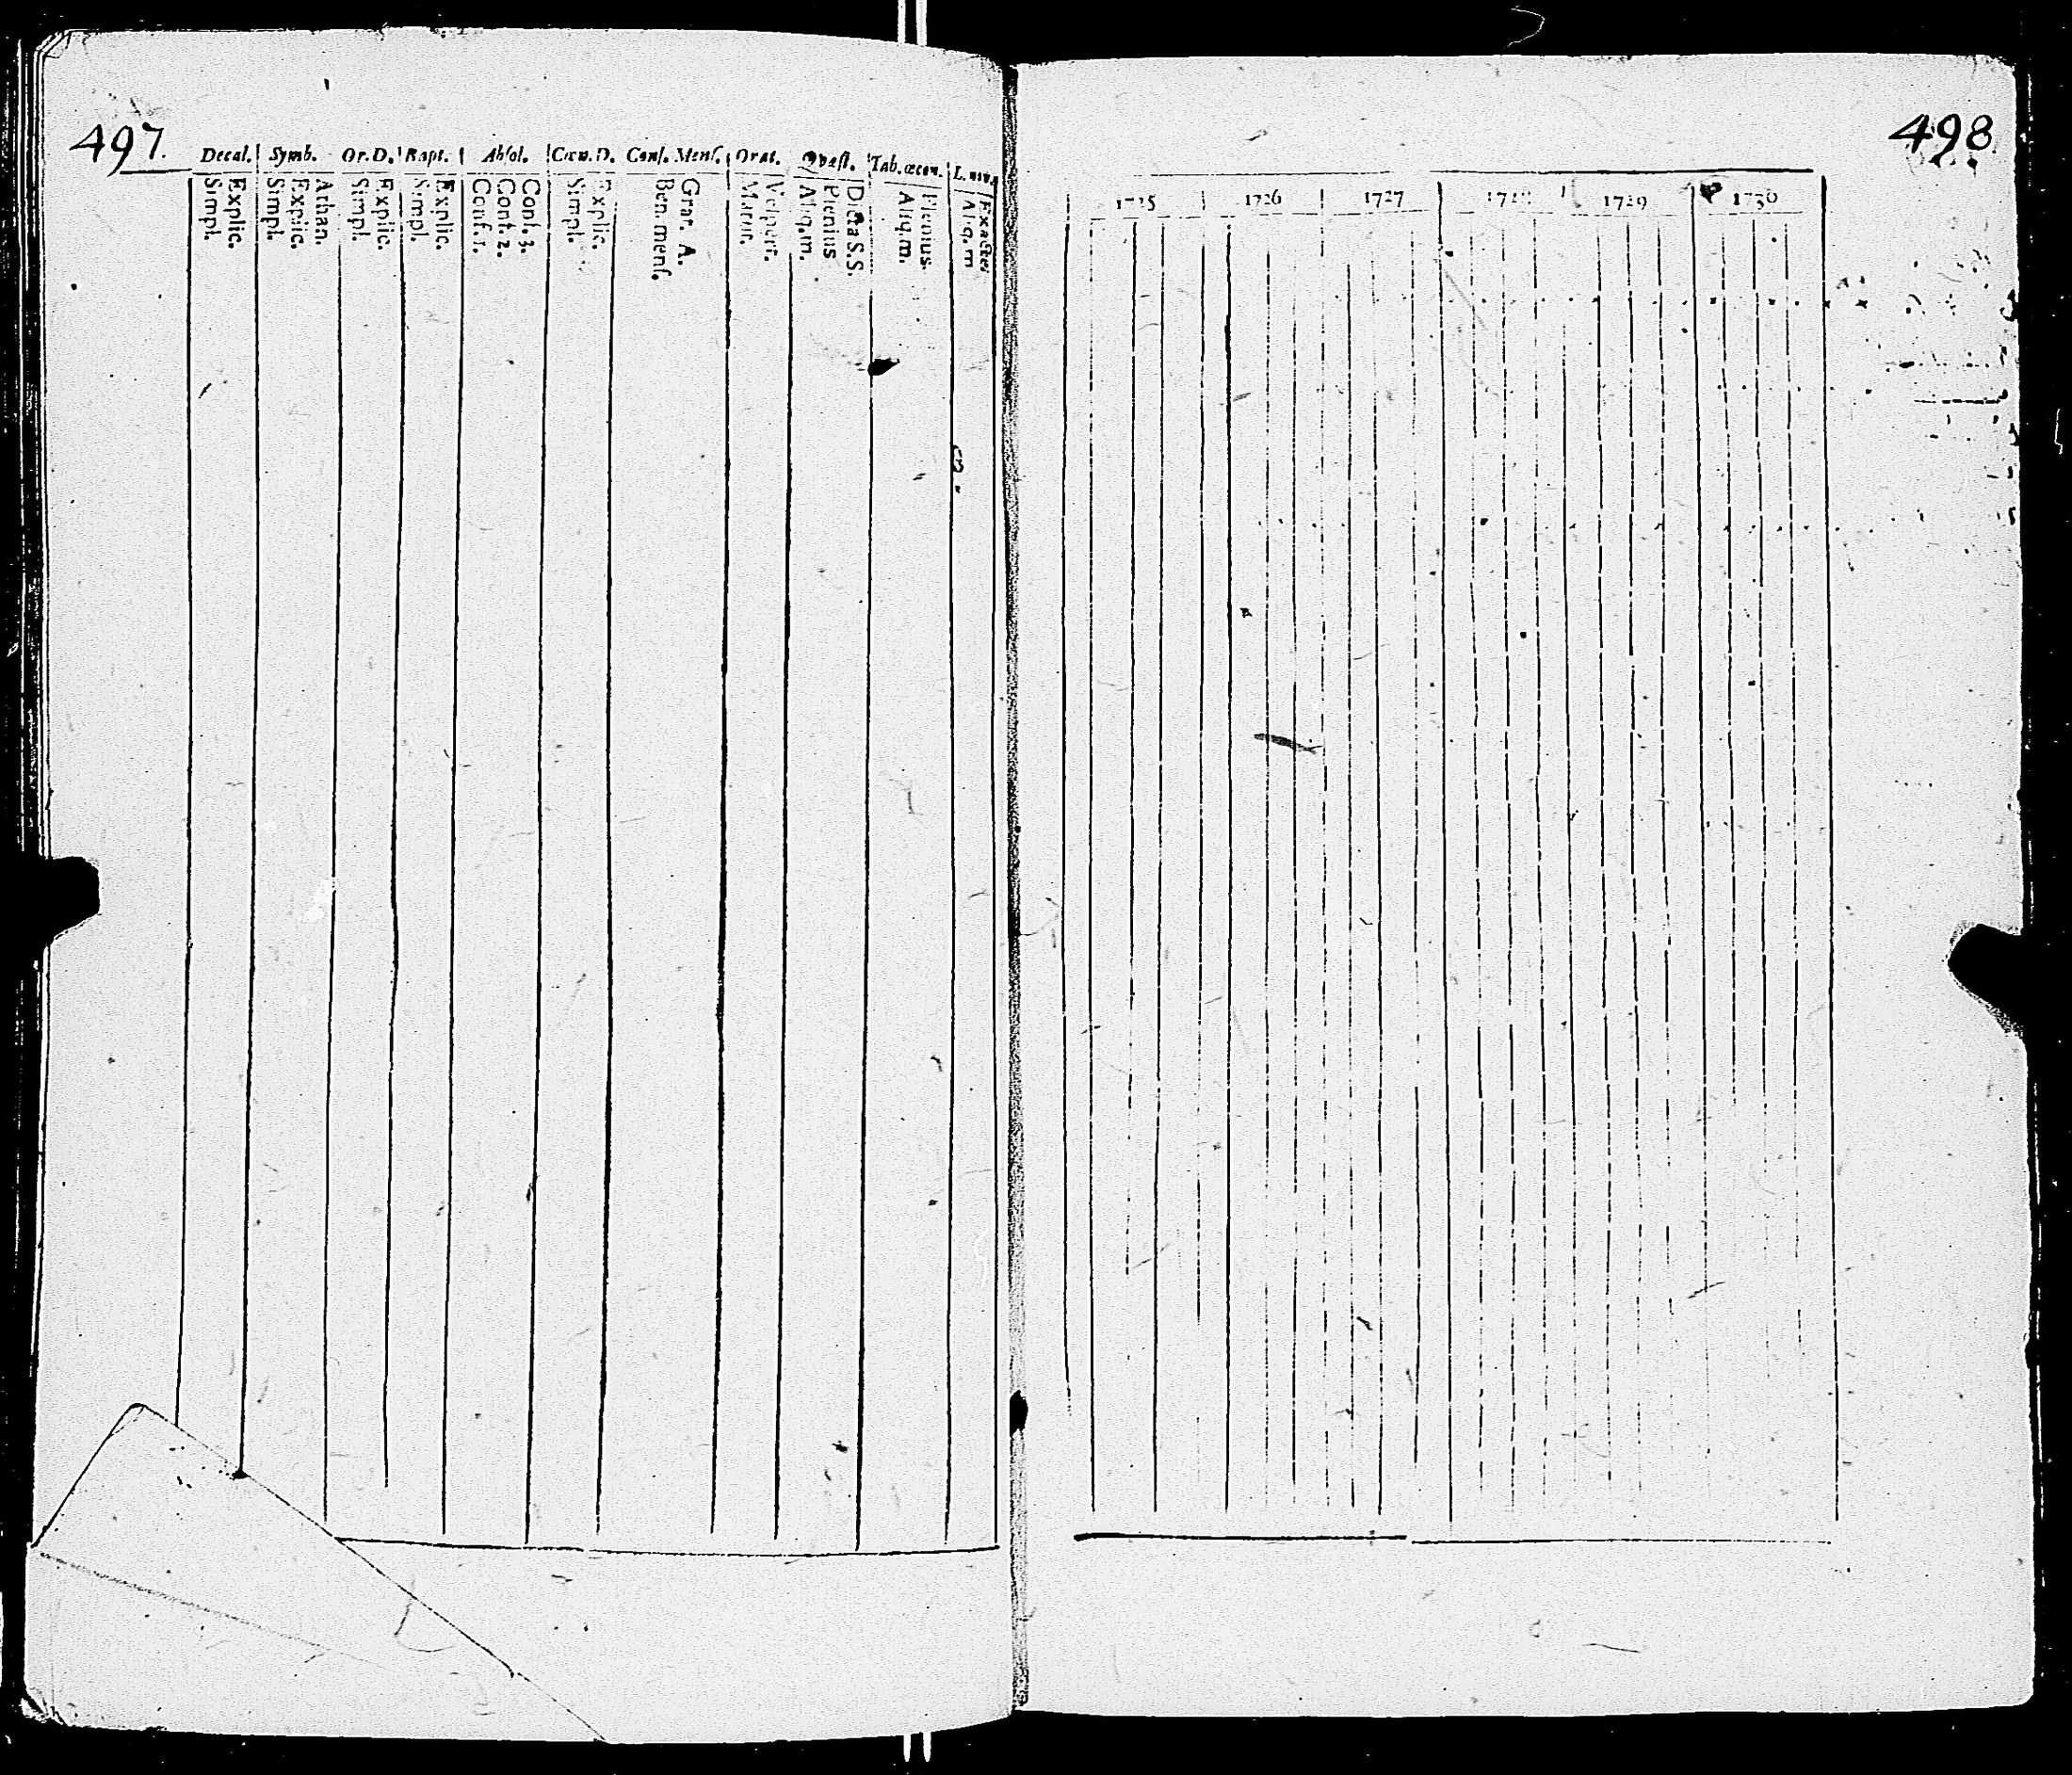 497.
Decal. Symb. Or.D. Bapt. Absol. Cœn.D. Conf. Menſ. Orat. Qvæſt. Tab. œcon. L. nov.
Explic. Simpl.
Athan. Explic. Simpl.
Explic. Simpl.
Explic. Simpl.
Conf. 3. Conf. 2. Conf. 1.
Explic. Simpl.
Grat. A. Ben. menſ.
Veſpert. Matut.
Dicta S.S. Plenius Aliq.m.
Plenius. Aliq.m.
Aliq.m
498
1725 1726 1727 1728 1729 1730